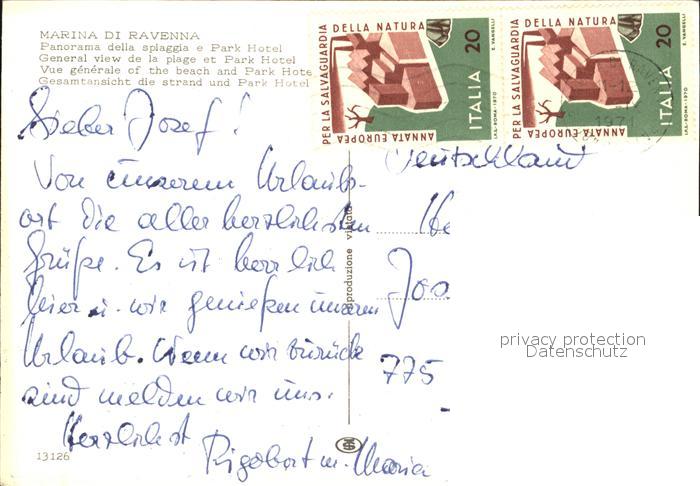 MARINA DI RAVENNA
Panorama della spiaggia e Park Hotel
General view de la plage et Park Hotel
Vue générale of the beach and Park Hote
Gesamtansicht die strand und Park Hotel
PER LA SALVAGUARDIA DELLA NATURA
20
ITALIA
ANNATA EUROPEA
I.P.S.-ROMA-1970
E. VANGELLI
PER LA SALVAGUARDIA DELLA NATURA
20
ITALIA
ANNATA EUROPEA
I.P.S.-ROMA-1970
E. VANGELLI
1971
Lieber Josef!
Von unserem Urlaubs-
ort die aller herzlichsten
Grüße. Es ist herrlich
hier u. wir genießen unseren
Urlaub. Wenn wir zurück
sind melden wir uns.
Herzlichst
Rigobert u. Maria
Deutschland
He
Jos
775
riproduzione vietata
privacy protection
Datenschutz
13126